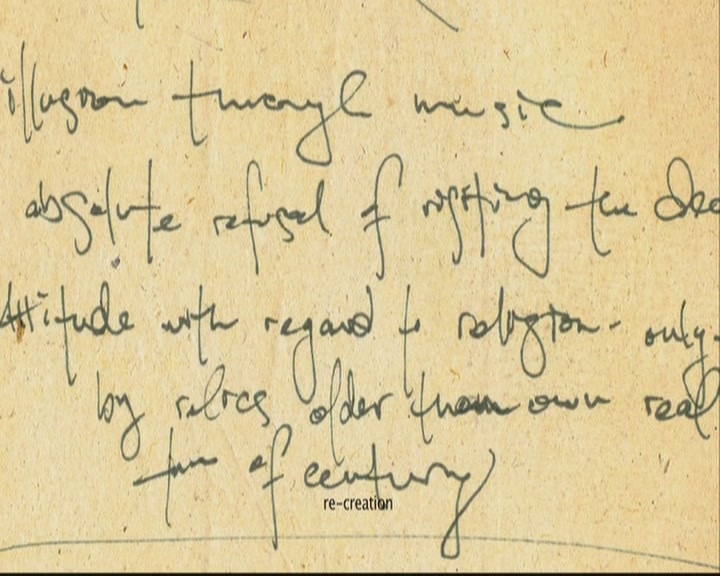 illusion through music
absolute refusal of the
attitude with regard to religion - only
by relics older than own real
turn of century
re-creation